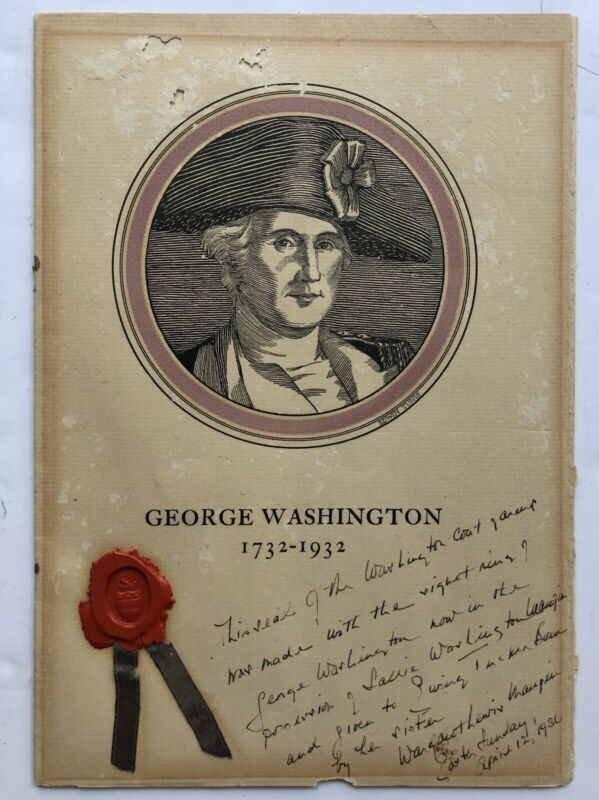 EDWIN TUNIS
GEORGE WASHINGTON
1732-1932
This seal of the Washington coat of arms
was made with the signet ring of
George Washington now in the
possession of Sallie Washington Maupin
and given to Ewing Tucker
by her sister Margaret Lewis Maupin
Easter Sunday!
April 12, 1936